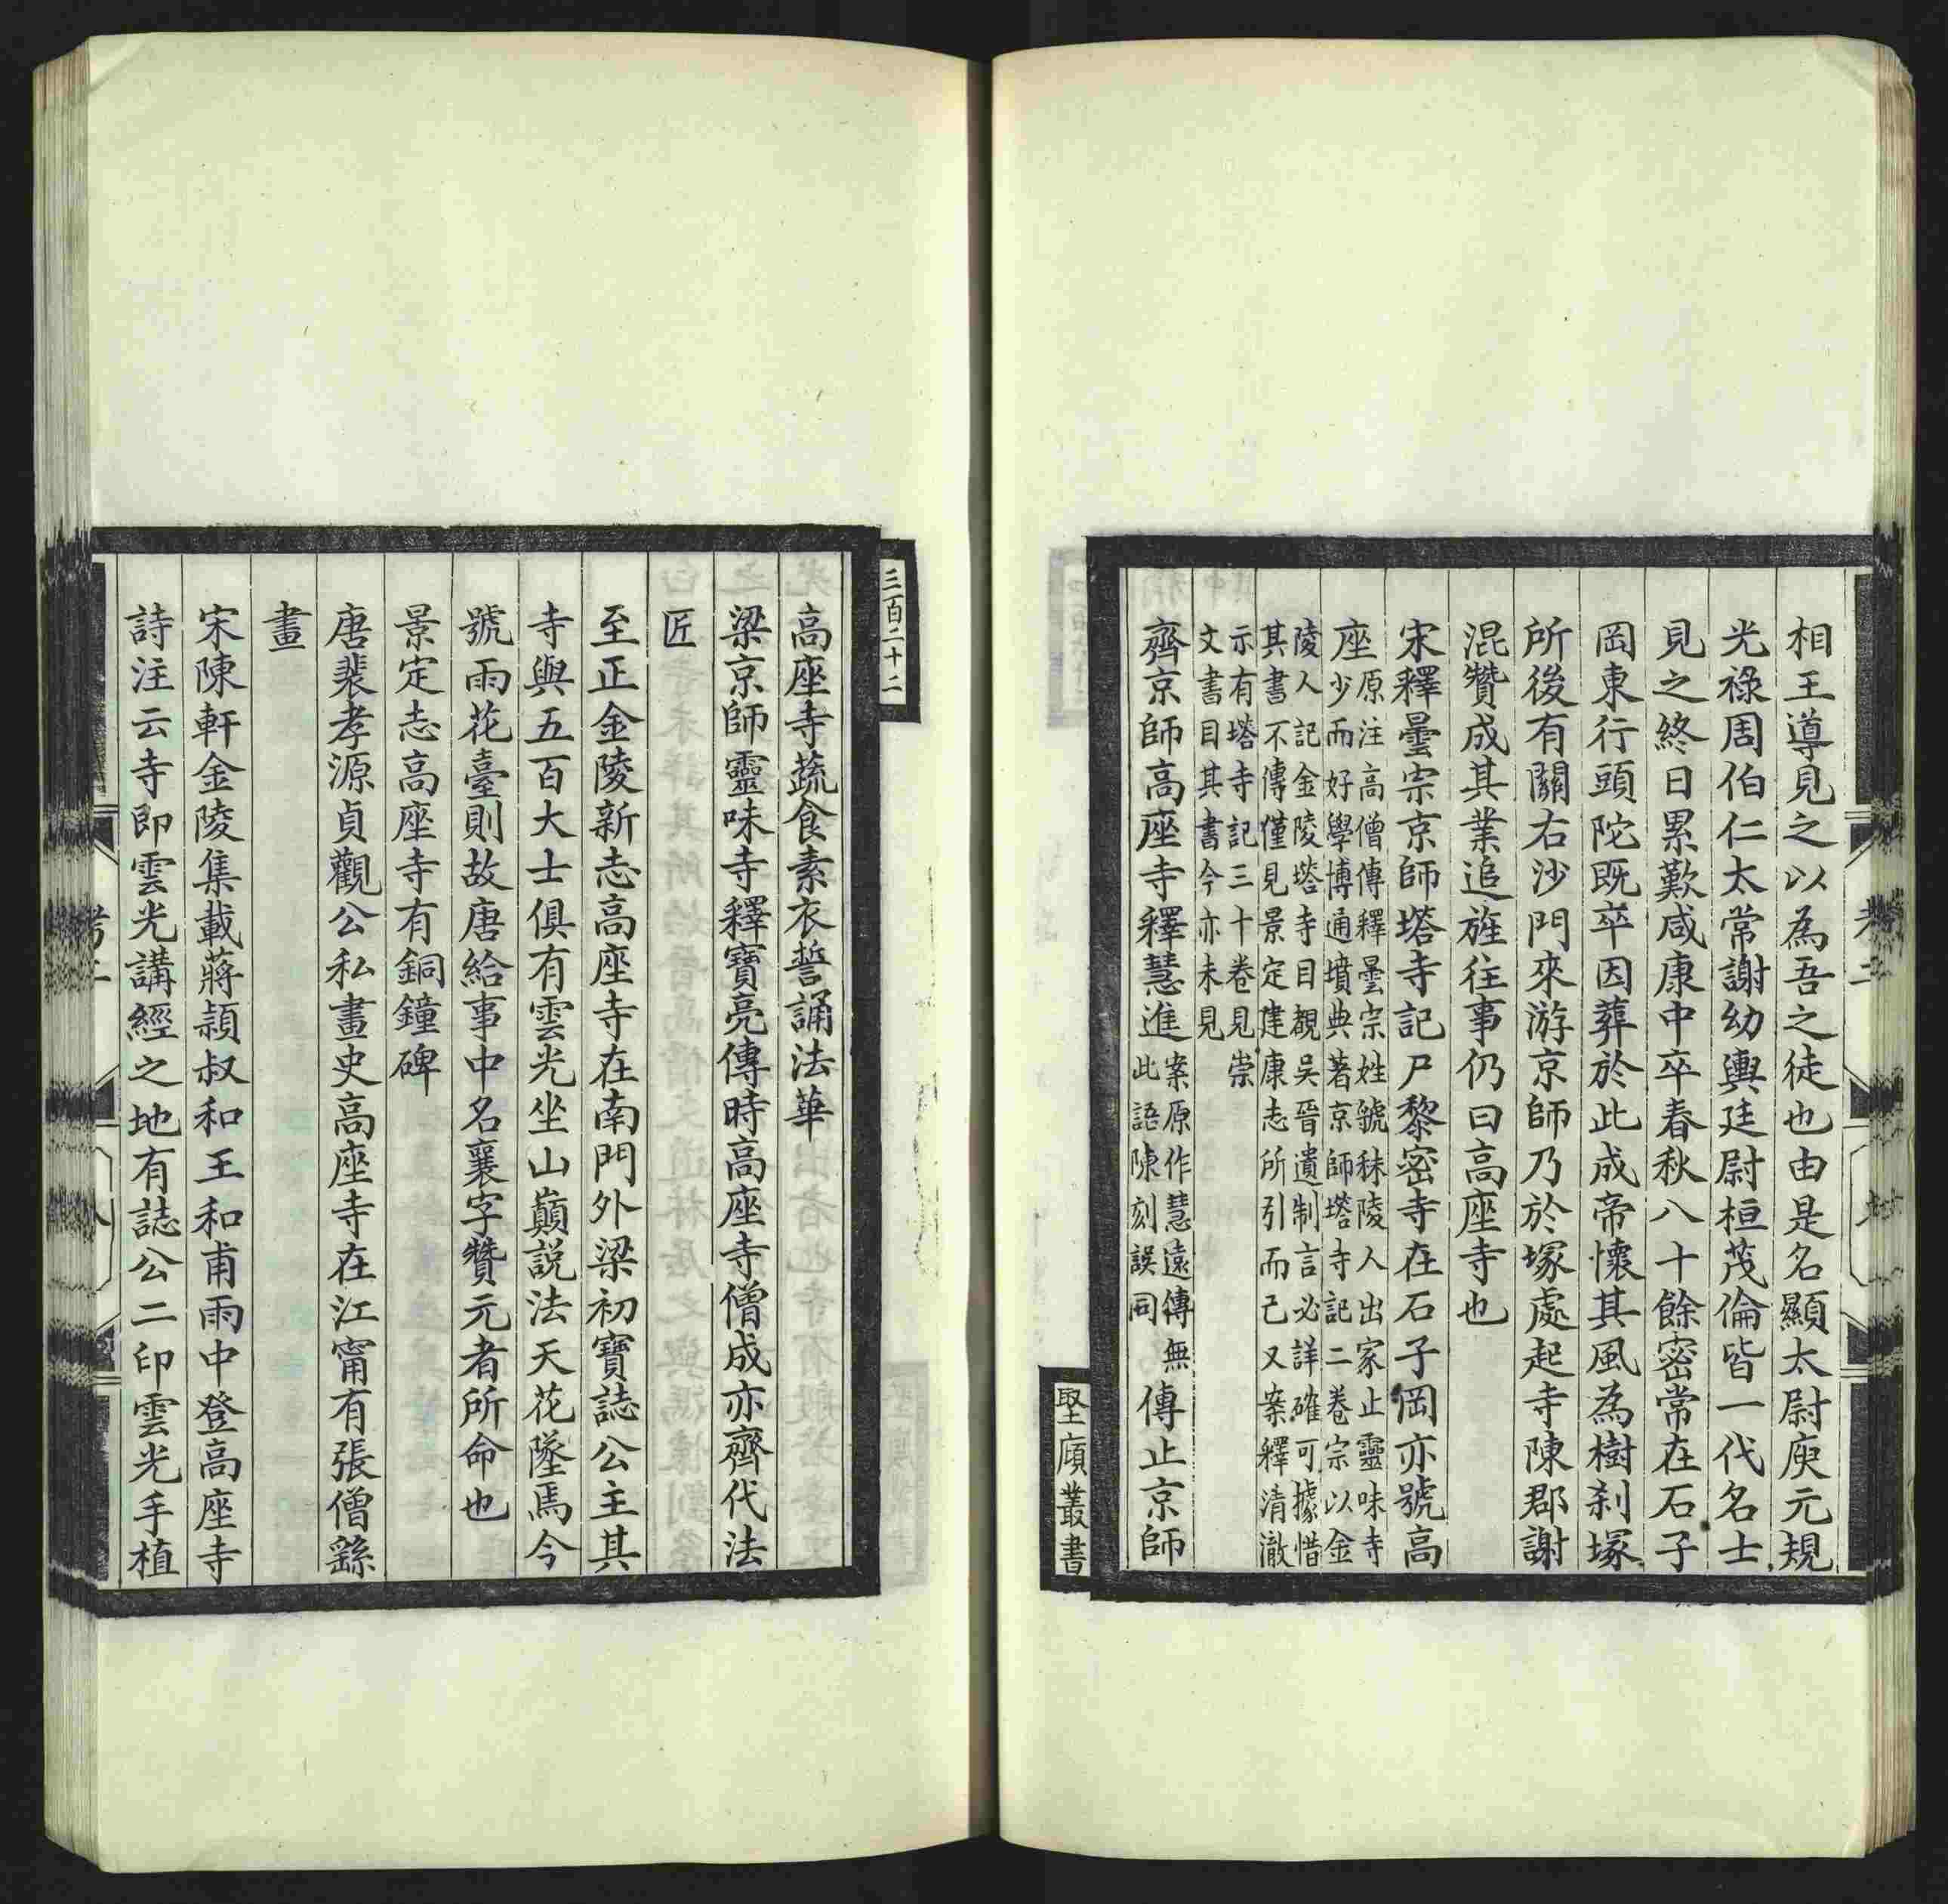 相王導見之以為吾之徒也由是名顯太尉庾元規
光祿周伯仁太常謝幼輿廷尉桓茂倫皆一代名士
見之終日累歎咸康中卒春秋八十餘密常在石子
岡東行頭陀既卒因葬於此成帝懷其風為樹剎塚
所後有關右沙門來游京師乃於塚處起寺陳郡謝
混贊成其業追旌往事仍曰高座寺也
宋釋曇宗京師塔寺記尸黎密寺在石子岡亦號高
座原注高僧傳釋曇宗姓虢秣陵人出家止靈味寺
少而好學博通墳典著京師塔寺記二卷宗以金
陵人記金陵塔寺目覩吳晉遺制言必詳確可據惜
其書不傳僅見景定建康志所引而已又案釋清澈
示有塔寺記三十卷見崇
文書目其書今亦未見
齊京師高座寺釋慧進案原作慧遠傳無
此語陳刻誤同傳止京師
堅頎叢書
考二
三百二十二
高座寺蔬食素衣誓誦法華
梁京師靈味寺釋寶亮傳時高座寺僧成亦齊代法
匠
至正金陵新志高座寺在南門外梁初寶誌公主其
寺與五百大士俱有雲光坐山巔說法天花墜焉今
號雨花臺則故唐給事中名襄字贊元者所命也
景定志高座寺有銅鐘碑
唐裴孝源貞觀公私畫史高座寺在江甯有張僧繇
畫
宋陳軒金陵集載蔣穎叔和王和甫雨中登高座寺
詩注云寺即雲光講經之地有誌公二印雲光手植